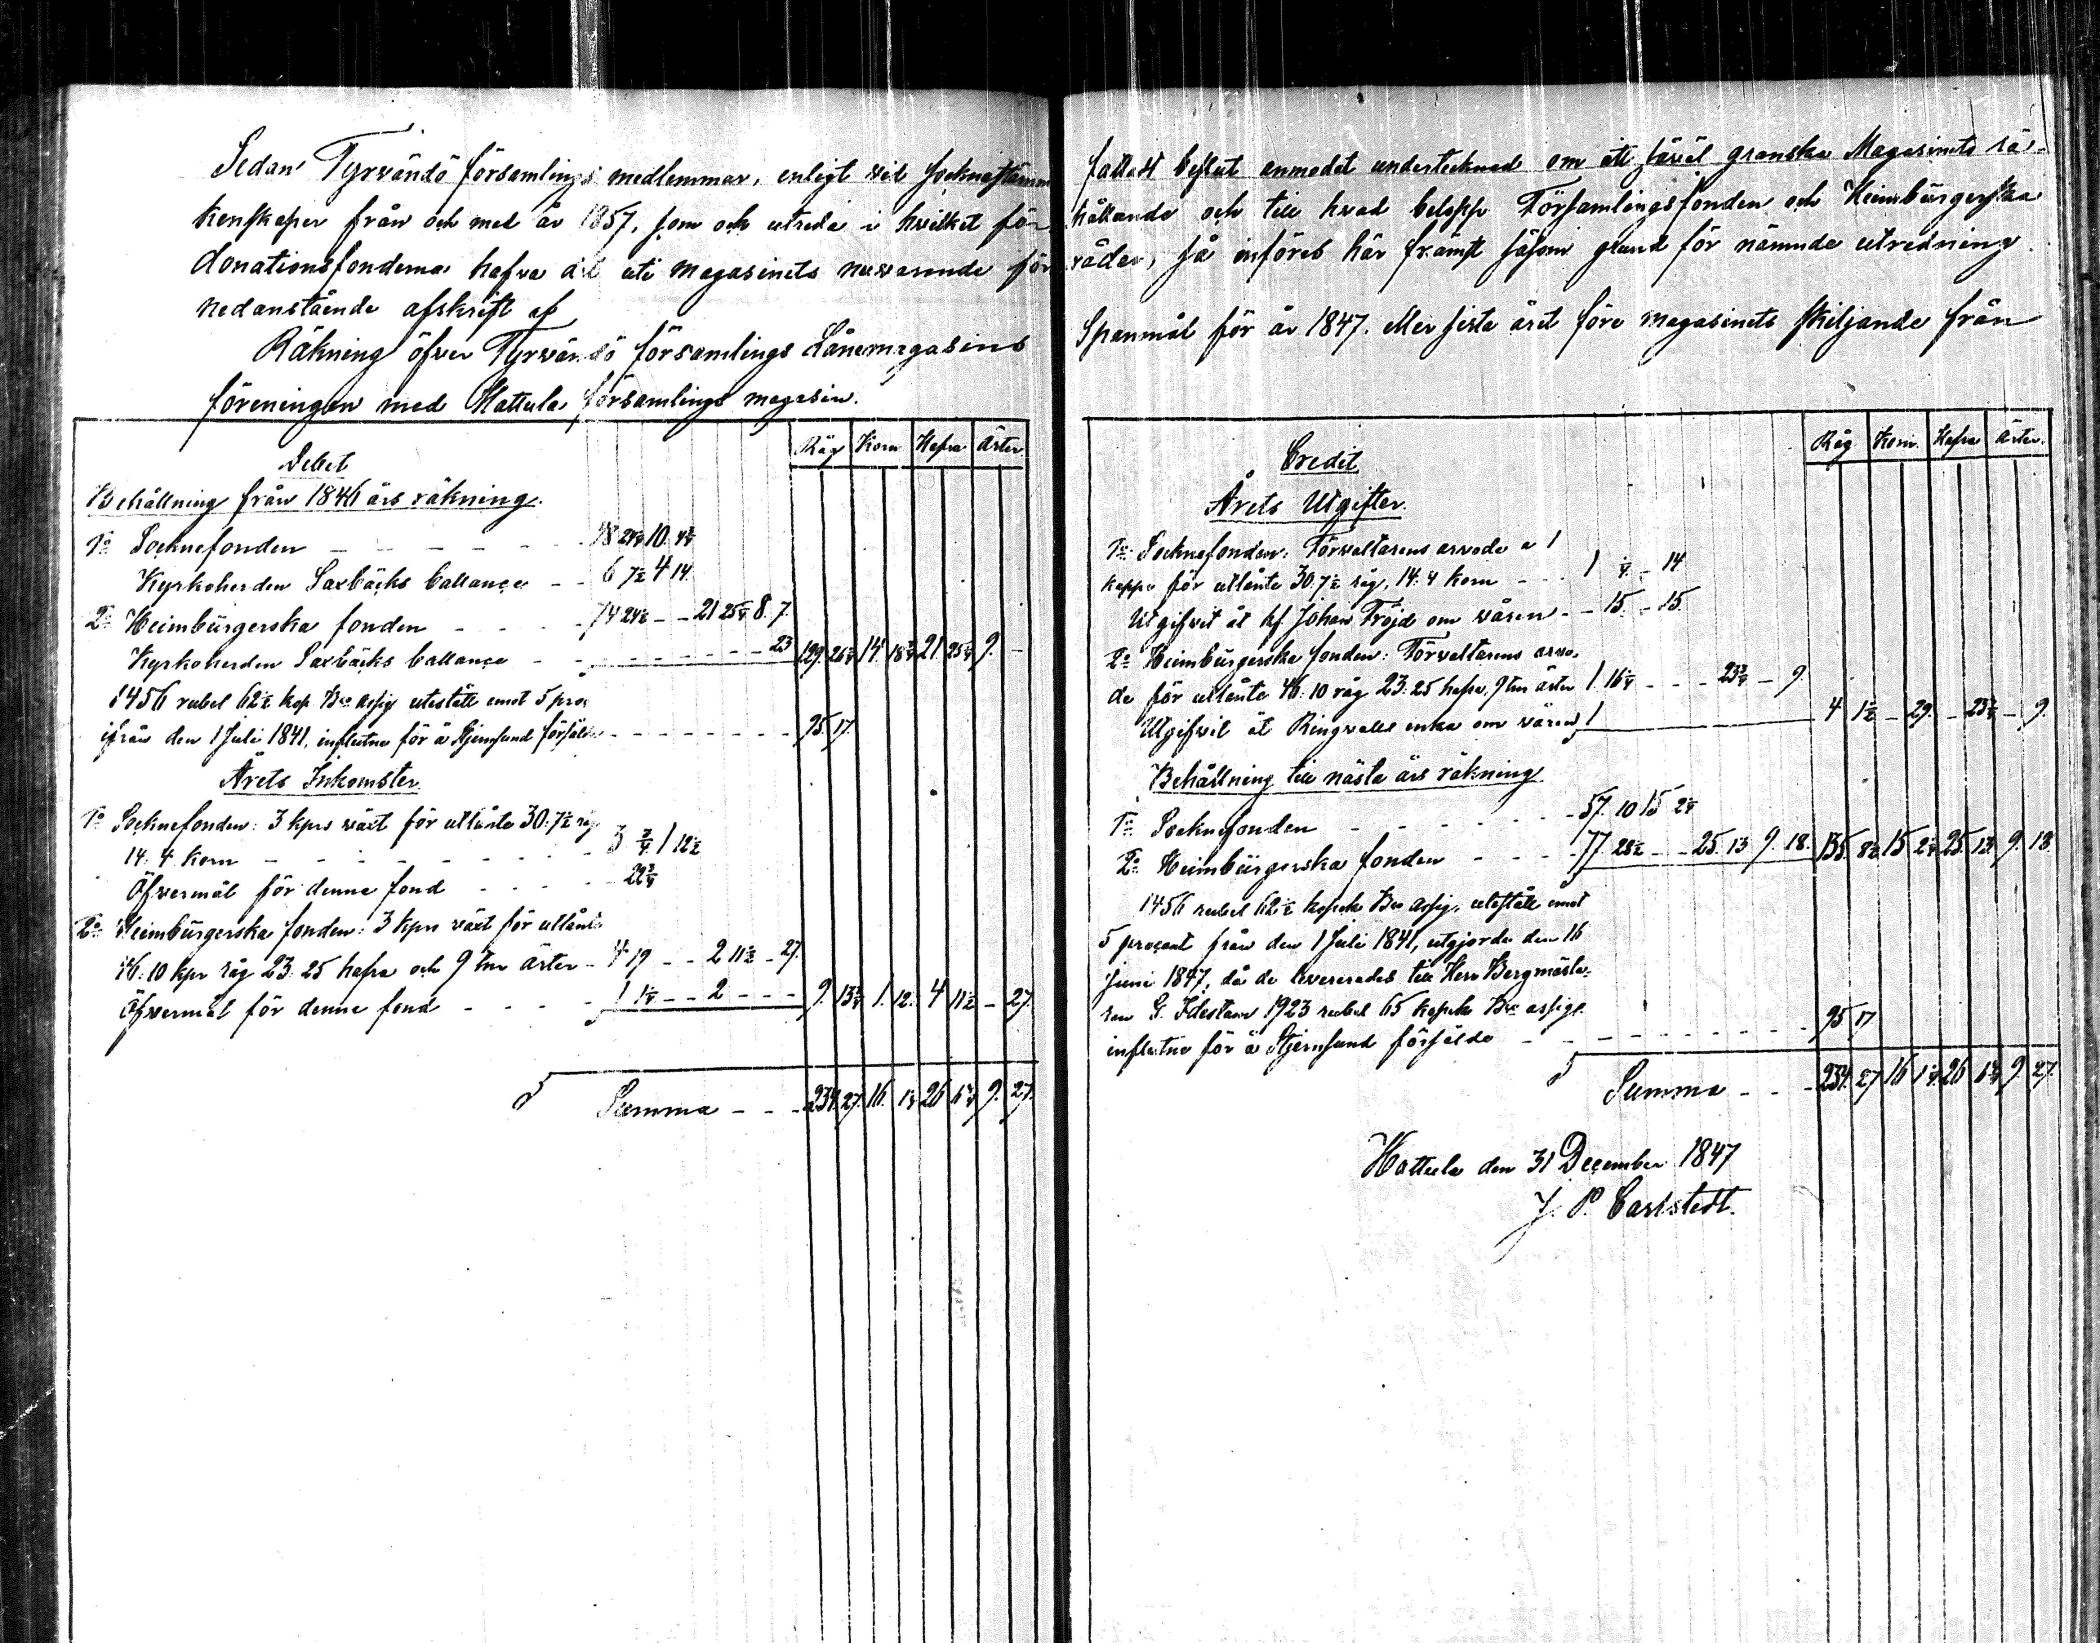 Sedan Tyrvändö församlings medlemmar, enligt vid sockenstämm
kenskaper från och med år 1857, som och utreda i hvilket för
donationsfonderna hafva del uti magasinets nuvarande för
nedanstående afskrift af
Räkning öfver Tyrvändö församlings Lånemagasins
föreningen med Hattula församlings magasin.
Råg Korn Hafra Ärter
Debet
Behållning från 1846 års räkning.
1o Socknefonden - - - 10.
Kyrkoherden Saxbäcks ballance - - 6 7½ 4 14.
2o Heimbürgerska fonden - - - 74 24½ - - 21 25¼ 8. 7.
Kyrkoherden Saxbäcks ballance - - - 23 129. 14 21 9. -
1456 rubel 62½ kop. Bco assig utestått emot 5 pro
ifrån den 1 Juli 1841, influtne för å Stjernsund försålde - - - 95 17.
Årets Inkomster
1o Socknefonden: 3 kprs växt för utlånte 30.7½ råg
14. 4 Korn - - - 3 1 12½
Öfvermål för denne fond - - -
2o Heimbürgerska fonden: 3 kprs växt för utlånte
46:10 kpr råg 23. 25 hafra och 9 tnr ärter - 4 19 - - 2 11½ - 27.
Öfvermål för denne fond - - - 1 1¼ - - 2 - - - 9. 1. 12. 4 11½ - 27.
Summa - - - 234. 27. 16. 26 9. 27.
fattadt beslut anmodat undertecknad om att såväl granska Magasinets rä-
hållande och till hvad belopp Församlingsfonden och Heimbürgerska
råder, så införes här främst såsom grund för nämnde utredning
Spanmål för år 1847. eller sista året före magasinets skiljande från
Råg Korn. Hafra Ärter.
Credit
Årets Utgifter.
1o Socknefonden: Förvaltarens arvode a 1
kappe för utlånte 30.7½ råg, 14.4 korn - - - 1 - 14
Utgifvit åt Johan Fröjd om våren - - 15. - 15.
2o Heimbürgerska fonden: Förvaltarens arvo-
de för utlånte 46:10 råg 23:25 hafra, 9 tnr ärter 1 16¼ - - - 23¾ - 9.
Utgifvit åt Ringvalls enka om våren 1 4 1½ - 29. - 23¾ - 9.
Behållning till nästa års räkning
1o Socknefonden - - - 57. 10 15 2¼
2o Heimbürgerska fonden - - - 77 28½ - - 25. 13 9. 18. 135. 8½ 15 2¼ 25 13 9. 18.
1456 rubel 62½ kopek Bco assig. utestått emot
5 procent från den 1 Juli 1841, utgjorde den 16
Juni 1847, då de levererades till Herr Bergmästa-
ren G. Idestam 1923 rubel 65 kopek Bco assig.
influtne för å Stjernsund försålde - - - 95 17
Summa - - - 234. 27 16 26 9. 27.
Hattula den 31 December 1847
J. P. Carlstedt.